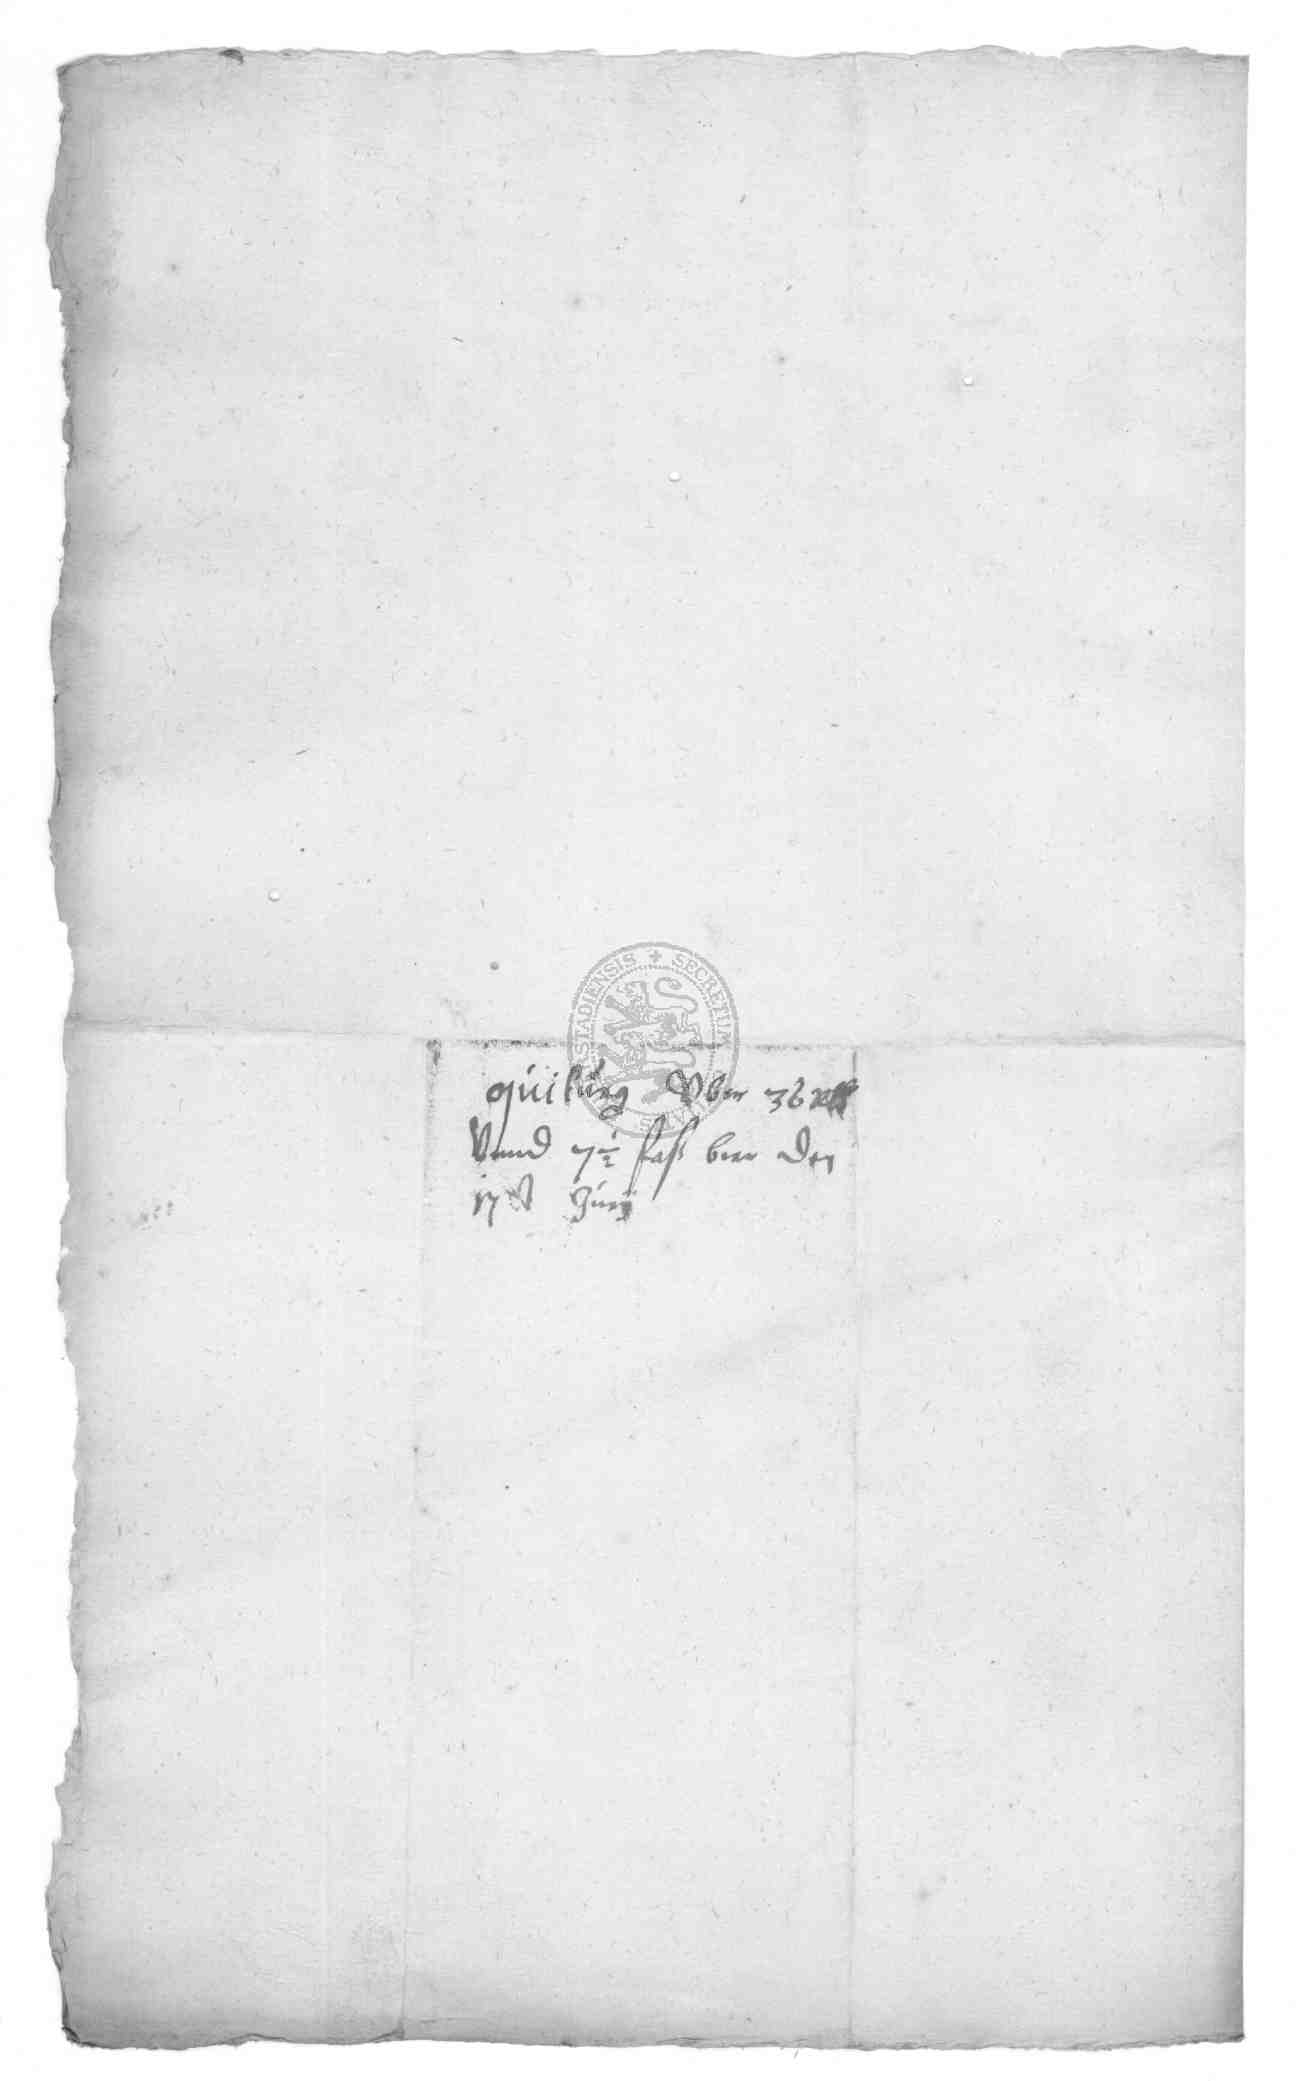 STADIENSIS + SECRETUM
quitung Vber 36
Vnnd 7½ faß bier den
17 Junij